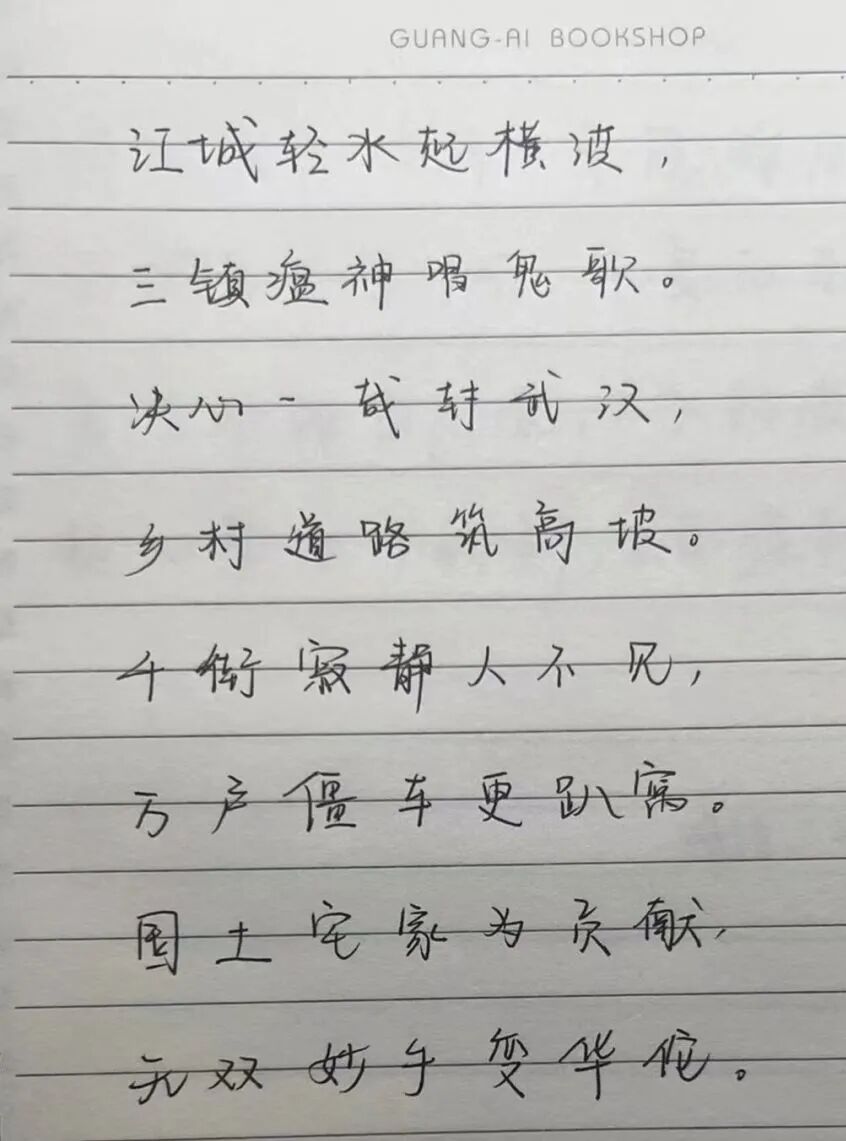 GUANG-AI BOOKSHOP
江城轻水起横波，
三镇瘟神唱鬼歌。
决心一战封武汉，
乡村道路筑高坡。
千街寂静人不见，
万户僵车更趴窝。
国土宅家为贡献，
无双妙手变华佗。